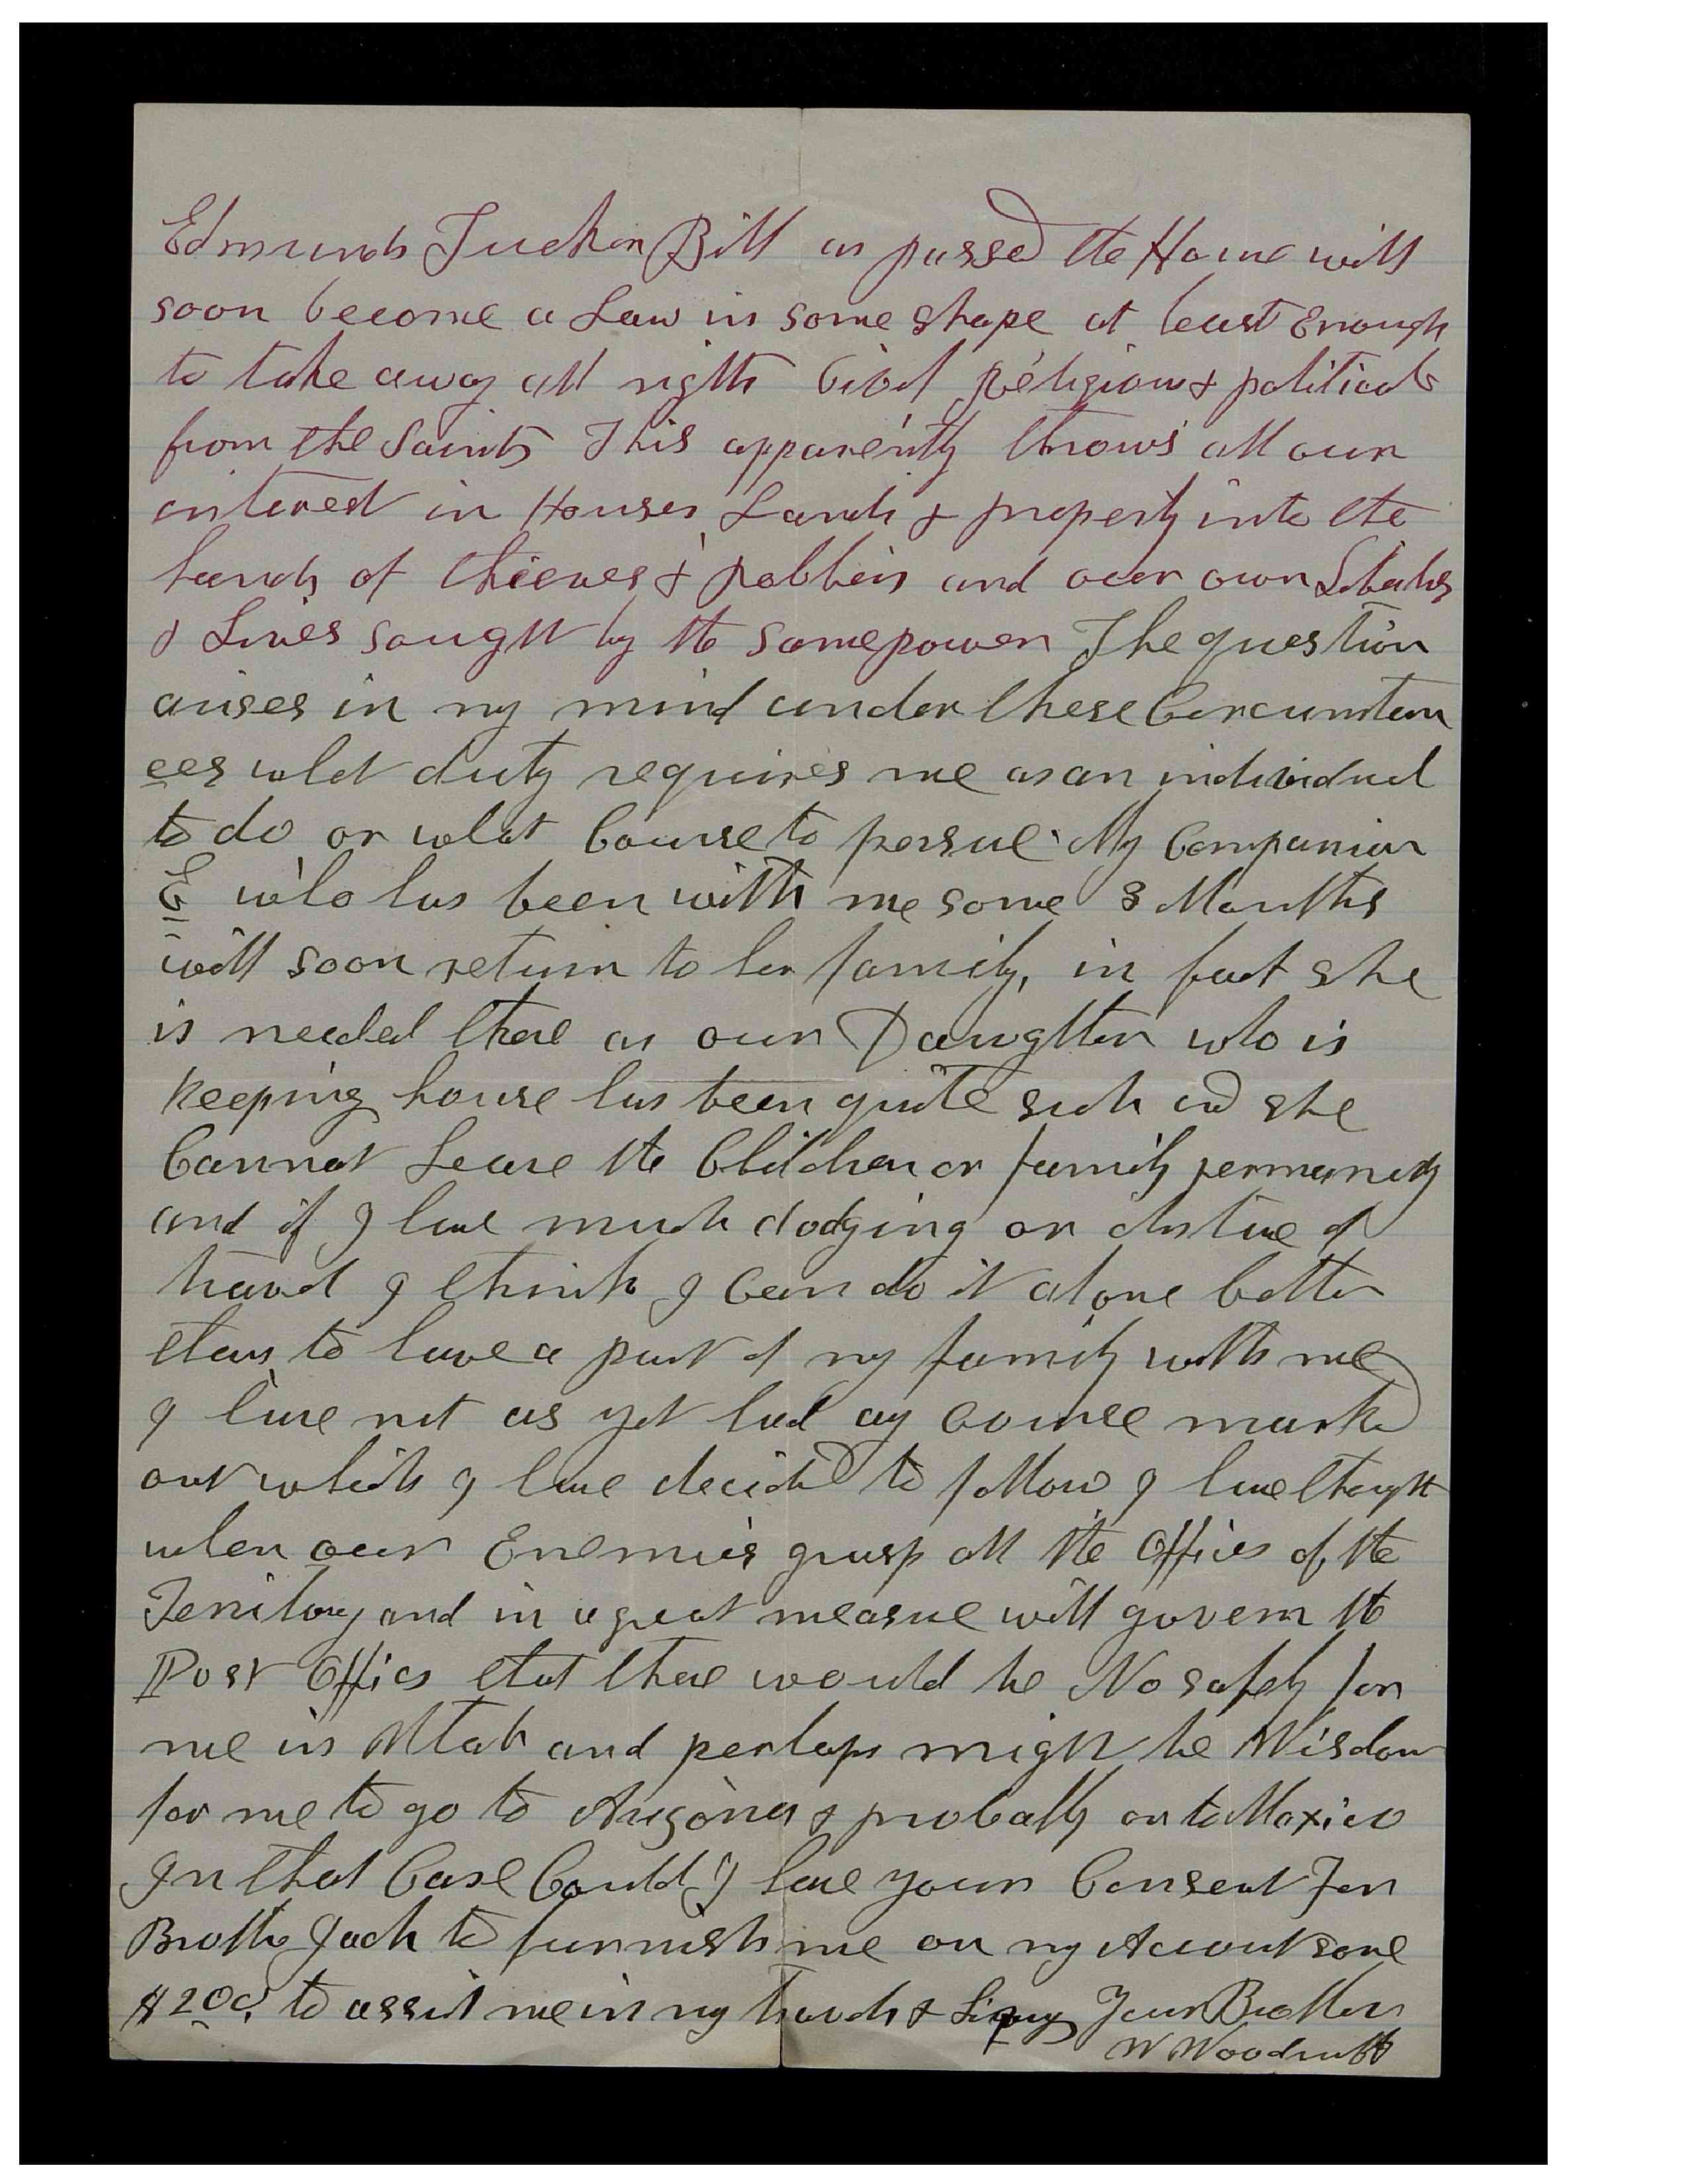 Edmunds Tucker Bill as passed the House will
soon become a Law in some shape at least Enough
to take away all rights Civil Religious & political
from the Saints This apparently throws all our
interest in Houses Lands & property into the
hands of thieves & robbers and our own Liberties
& Lives sought by the same power The question
arises in my mind under these Circumstan
ces what duty requires me as an individual
to do or what Course to persue. My Companion
E who has been with me some 3 Months
will soon return to her family, in fact she
is needed there as our Daughter who is
keeping house has been quite sick and she
Cannot Leave the Children or family permanently
and if I have much dodging or distance of
travel I think I can do it alone better
than to have a part of my family with me
I have not as yet had any course marked
out which I have decided to follow I have thought
when our Enemies grasp all the Offices of the
Territory and in a great measure will govern the
Post Offices that there would be No safety for
me in Utah and perhaps might be Wisdom
for me to go to Arizona & probably on to Mexico
In that Case Could I have your Consent For
Brother Jack to furnish me on my Account some
$200. to assist me in my travels & Living Your Brother
W Woodruff